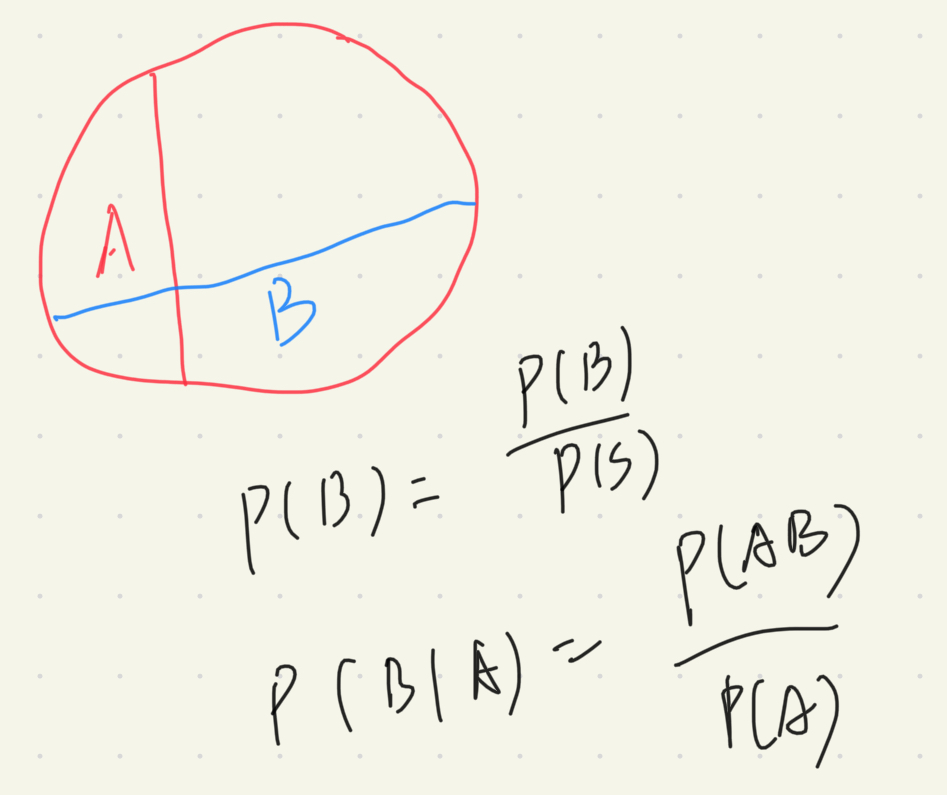 A
B
P(B) = P(B) / P(S)
P(B|A) = P(AB) / P(A)